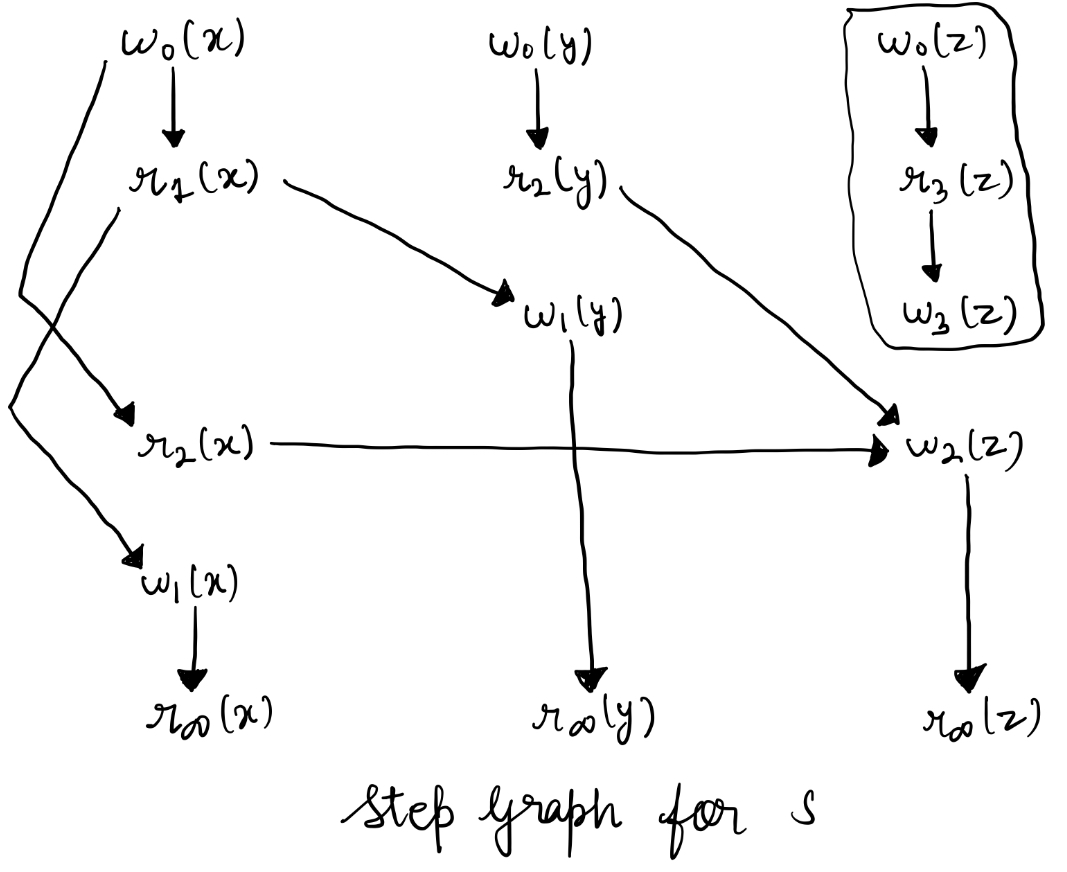 w₀(x) w₀(y) w₀(z)
r₁(x) r₂(y) r₃(z)
w₁(y) w₃(z)
r₂(x) w₂(z)
w₁(x)
r∞(x) r∞(y) r∞(z)
Step Graph for s